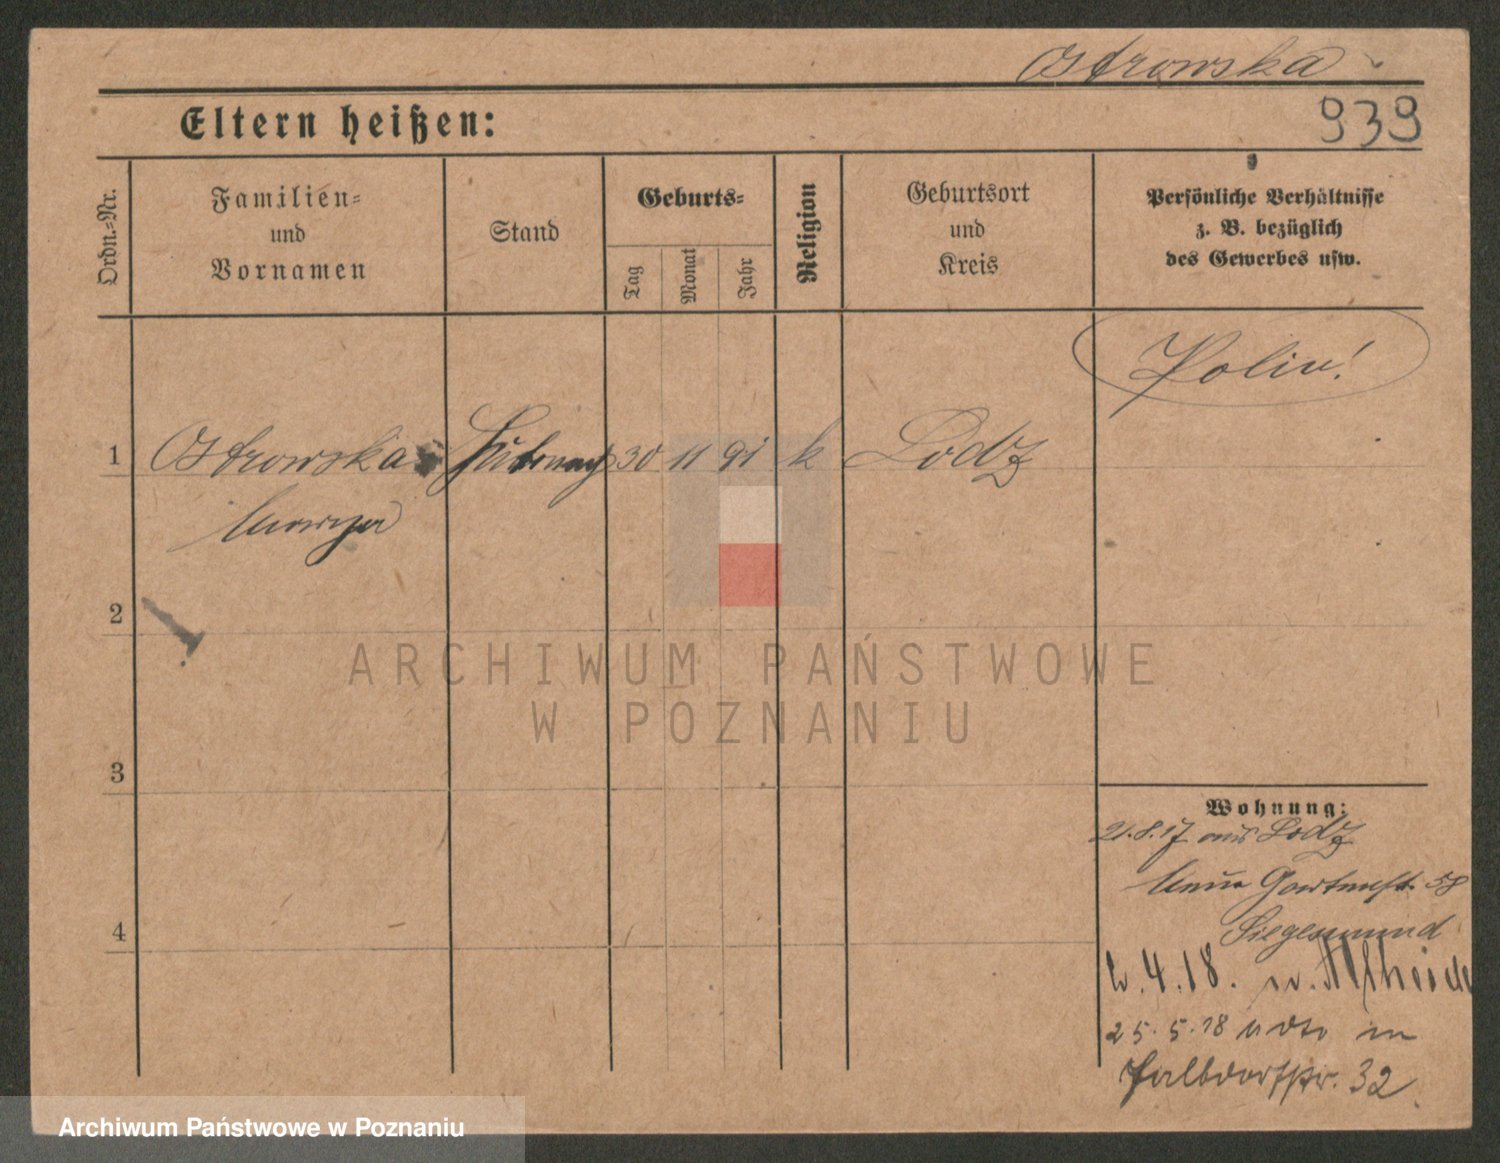 Ostrowska
Eltern heißen:
939
Ordn.-Nr.
Familien-
und
Vornamen
Stand
Geburts-
Tag
Monat
Jahr
Religion
Geburtsort
und
Kreis
Persönliche Verhältnisse
z. B. bezüglich
des Gewerbes usw.
1
Ostrowska 30 11 91 k Lodz
2
3
4
Wohnung:
21.8.17 aus Lodz
Neue Gartenst. 58
Siegesmund
4.18.
25.5.18 in
32
ARCHIWUM PAŃSTWOWE
W POZNANIU
Archiwum Państwowe w Poznaniu